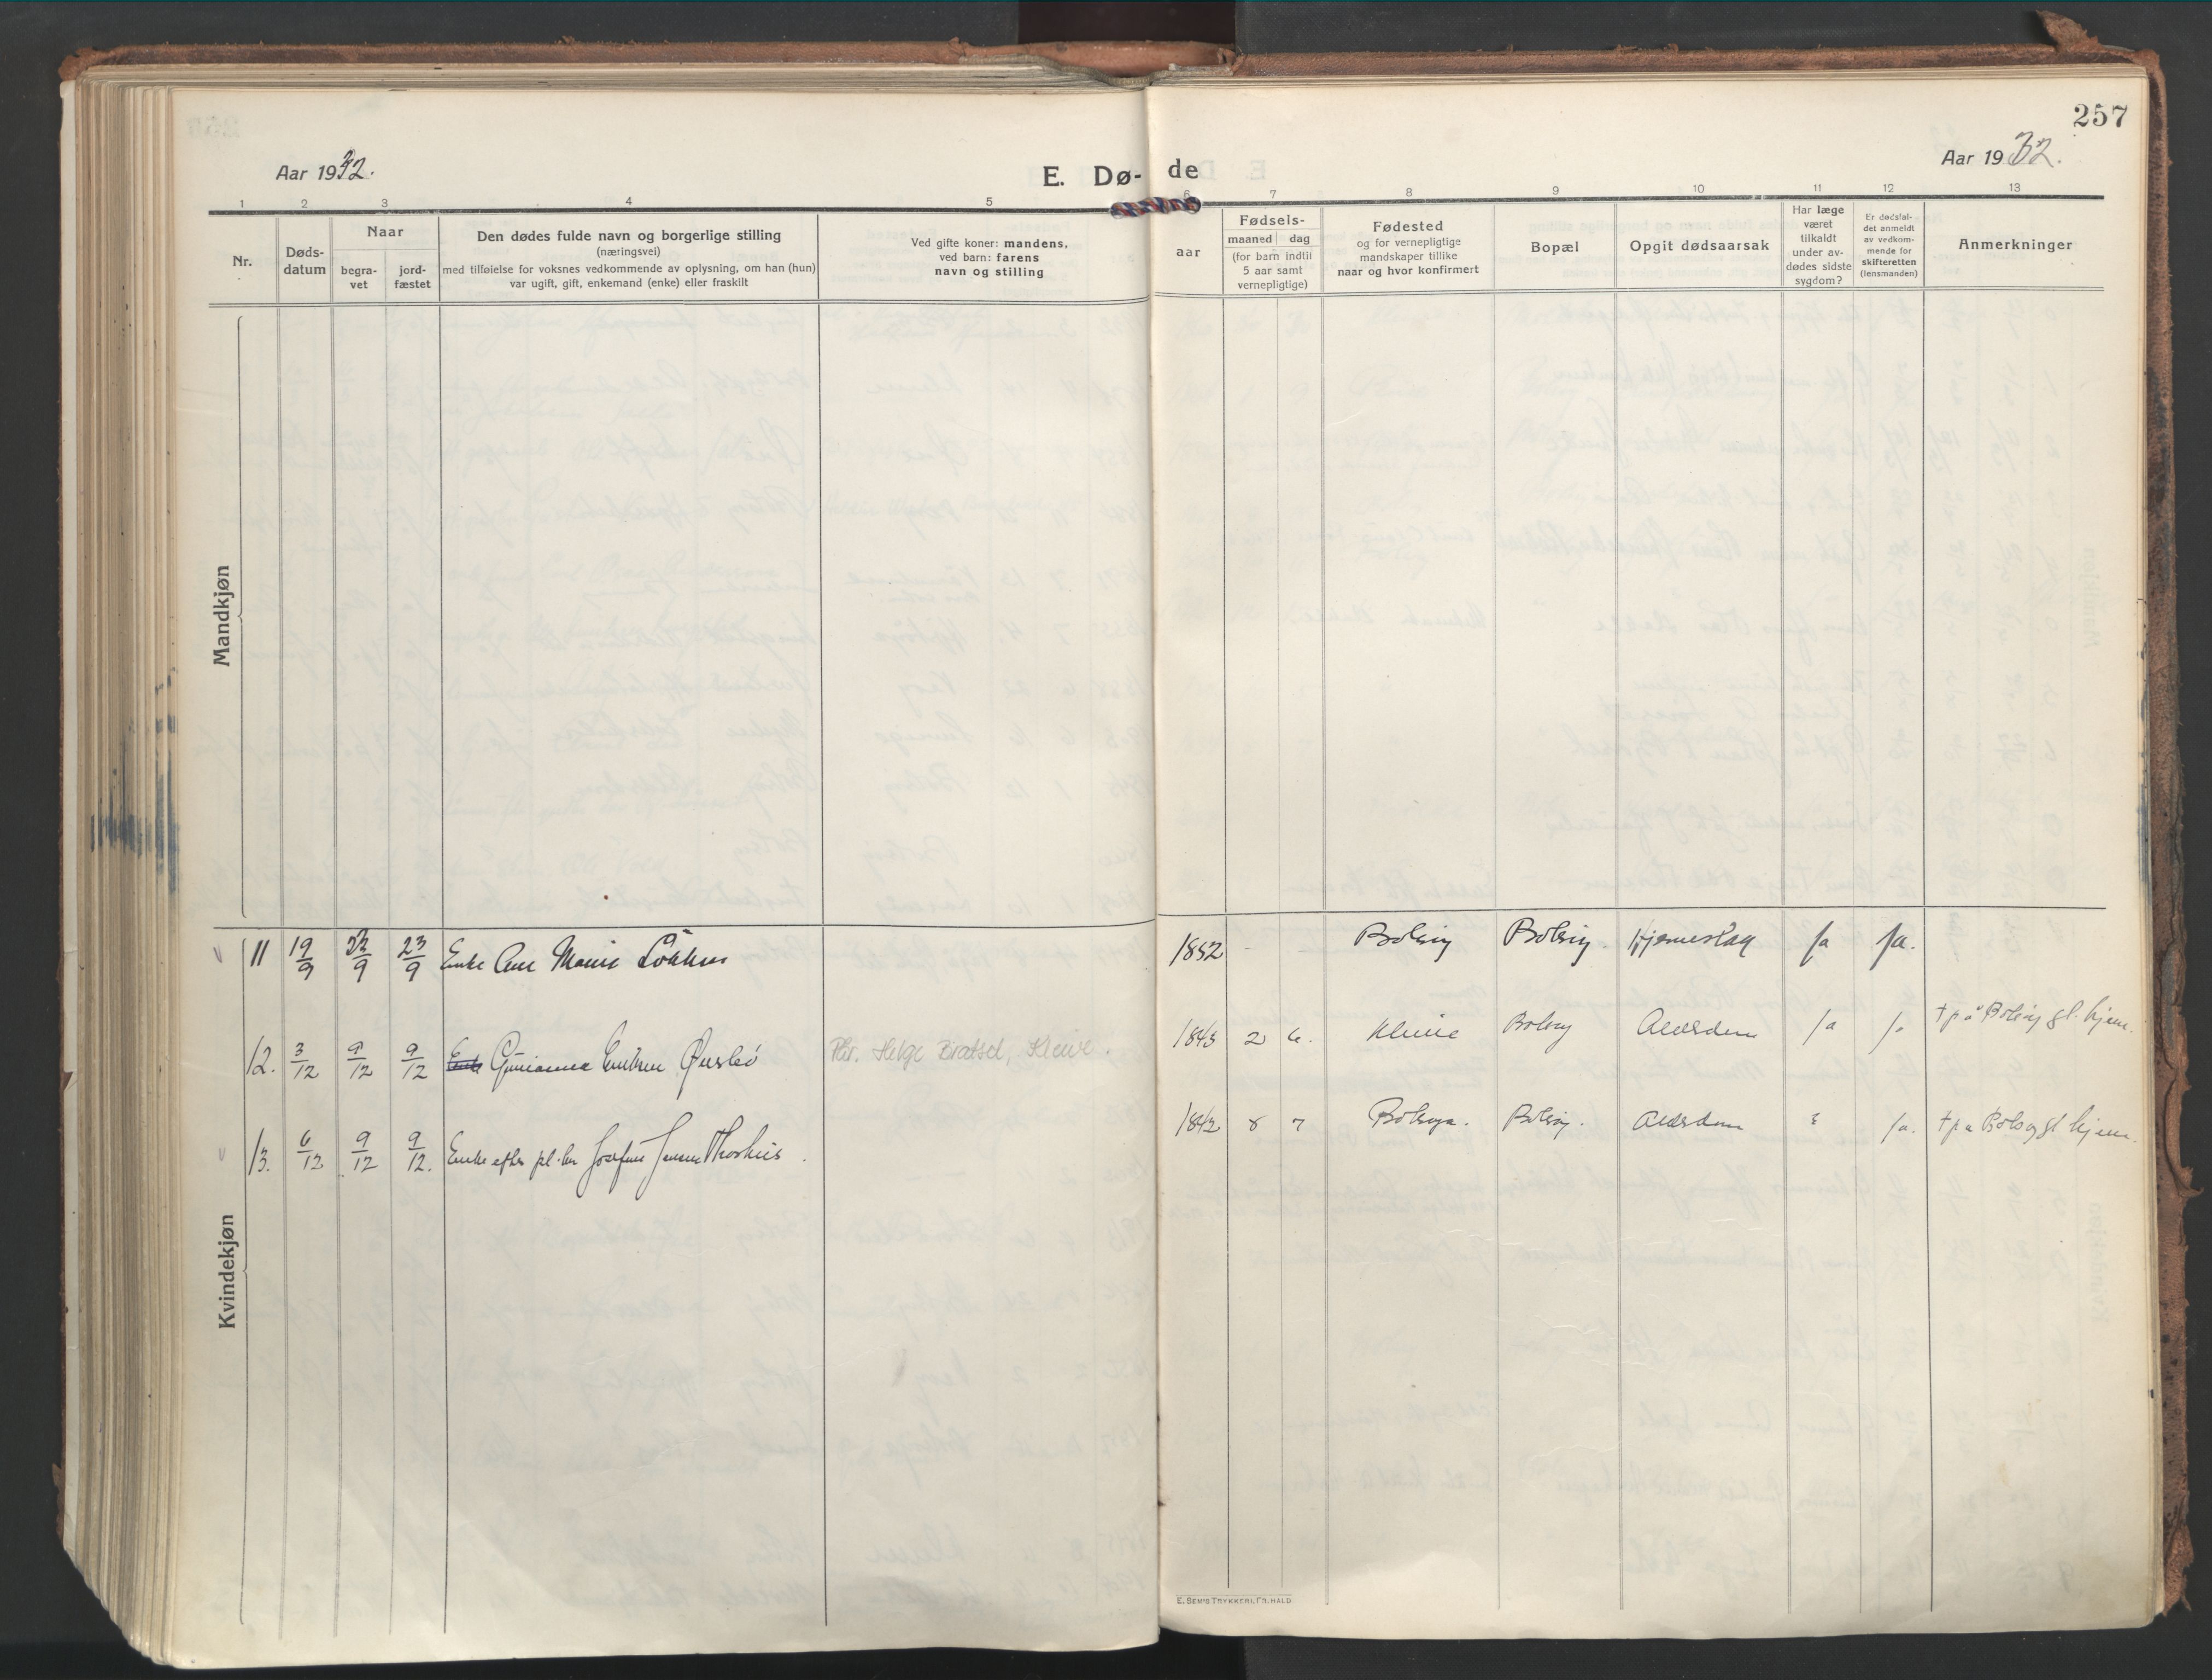 257
Aar 1932.
E. Dø- de
Aar 1932.
1 2 3 4 5 6 7 8 9 10 11 12 13
Nr.
Døds-
datum
Naar
begra-
vet
jord-
fæstet
Den dødes fulde navn og borgerlige stilling
(næringsvei)
med tilføielse for voksnes vedkommende av oplysning, om han (hun)
var ugift, gift, enkemand (enke) eller fraskilt
Ved gifte koner: mandens,
ved barn: farens
navn og stilling
Fødsels-
aar
maaned dag
(for barn indtil
5 aar samt
vernepligtige)
Fødested
og for vernepligtige
mandskaper tillike
naar og hvor konfirmert
Bopæl
Opgit dødsaarsak
Har læge
været
tilkaldt
under av-
dødes sidste
sygdom?
Er dødsfal-
det anmeldt
av vedkom-
mende for
skifteretten
(lensmanden)
Anmerkninger
Mandkjøn
Kvindekjøn
11 19/9 23/9 23/9 Enke Ane Marie Løkken 1852 - - Bolsøy Bolsøy. Hjerneslag ja ja.
12. 3/12 9/12 9/12 Gurianna Øverbø Helge Bratset, Kleive. 1843 2 6. Kleive Bolsøy Alderdom ja ja † på Bolsøy gl. hjem.
13. 6/12 9/12 9/12. Enke efter Josefine Jensen 1842 8 7 Bolsøya. Bolsøy. Alderdom ja. † på Bolsøy gl hjem.
E. SEM'S TRYKKERI, FR. HALD